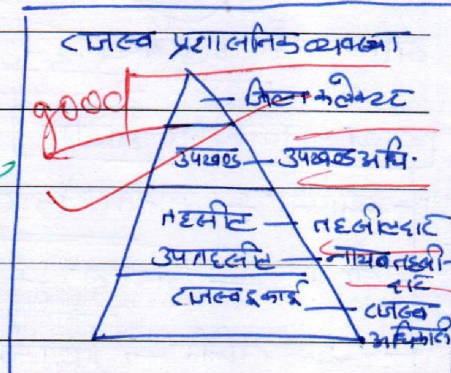 राजस्व प्रशासनिक व्यवस्था
good
जिला कलेक्टर
उपखण्ड — उपखण्ड अधि.
तहसील — तहसीलदार
उपतहसील — नायब तहसी-
दार
राजस्व इकाई — राजस्व
अधिकारी